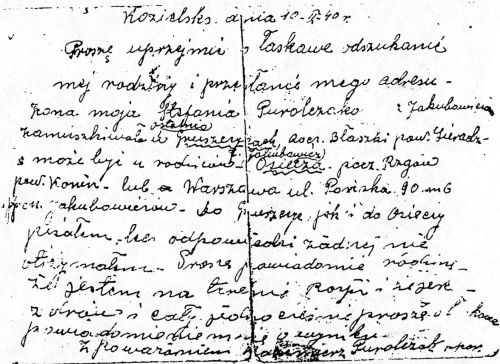 Kozielsk. dnia 10-II-40 r.
Proszę uprzejmie o łaskawe odszukanie
mej rodziny i przesłanie mego adresu -
żona moja Stefania Purolczak z Jakubowiczów
zamieszkiwała ostatnio w Gruszczycach, pocz. Błaszki pow. Sieradz-
a może być u rodziców Jakubowicz Osiecza, pocz. Rzgów
pow. Konin - lub - a Warszawa ul. Pańska 90. m 6
Jakubowiczów - do Gruszczyc jak i do Osieczy
pisałem, lecz odpowiedzi żadnej nie
otrzymałem - Proszę powiadomić rodzinę,
że jestem na terenie Rosji i
zdrów i cały jednocześnie proszę o
powiadomienie mnie o wyniku
Z poważaniem Kazimierz Purolczak